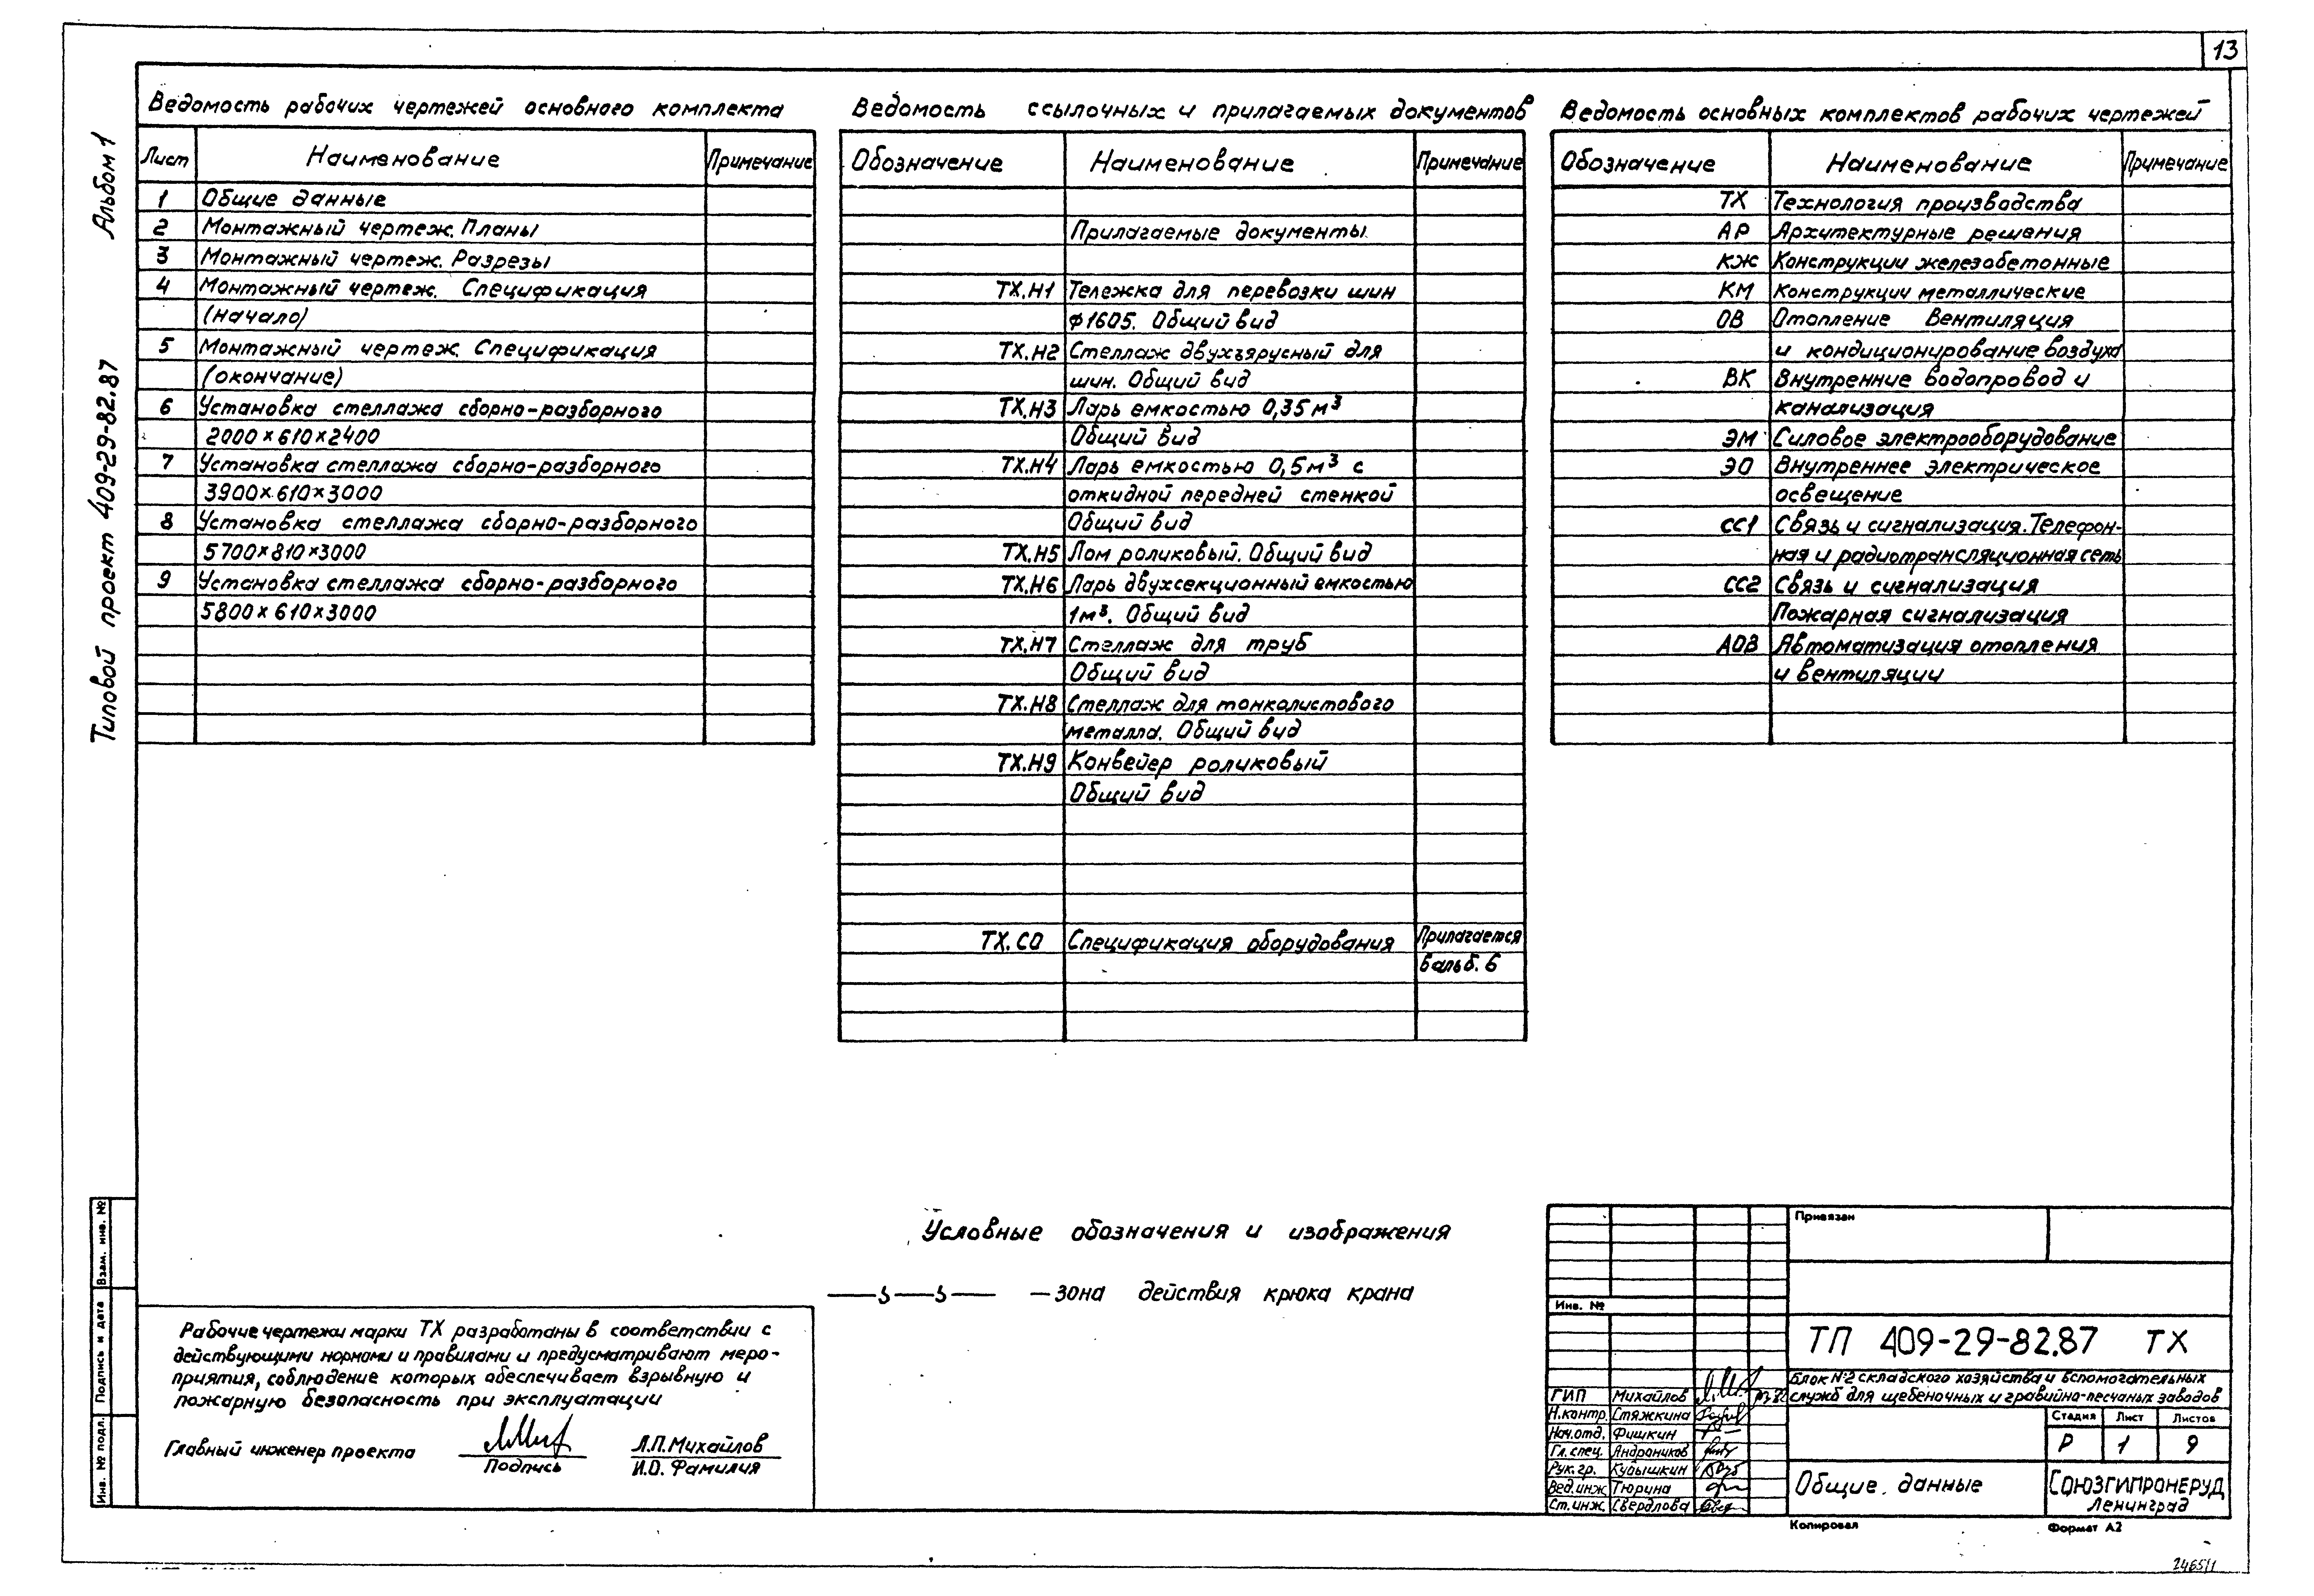 13
Альбом 1
Типовой проект 409-29-82.87
Ведомость рабочих чертежей основного комплекта
Лист Наименование Примечание
1 Общие данные
2 Монтажный чертеж. Планы
3 Монтажный чертеж. Разрезы
4 Монтажный чертеж. Спецификация
(начало)
5 Монтажный чертеж. Спецификация
(окончание)
6 Установка стеллажа сборно-разборного
2000×610×2400
7 Установка стеллажа сборно-разборного
3900×610×3000
8 Установка стеллажа сборно-разборного
5700×810×3000
9 Установка стеллажа сборно-разборного
5800×610×3000
Ведомость ссылочных и прилагаемых документов
Обозначение Наименование Примечание
Прилагаемые документы
ТХ.Н1 Тележка для перевозки шин
ф1605. Общий вид
ТХ.Н2 Стеллаж двухъярусный для
шин. Общий вид
ТХ.Н3 Ларь емкостью 0,35 м³
Общий вид
ТХ.Н4 Ларь емкостью 0,5 м³ с
откидной передней стенкой
Общий вид
ТХ.Н5 Лом роликовый. Общий вид
ТХ.Н6 Ларь двухсекционный емкостью
1м³. Общий вид
ТХ.Н7 Стеллаж для труб
Общий вид
ТХ.Н8 Стеллаж для тонколистового
металла. Общий вид
ТХ.Н9 Конвейер роликовый
Общий вид
ТХ.СО Спецификация оборудования Прилагается
в альб. 6
Ведомость основных комплектов рабочих чертежей
Обозначение Наименование Примечание
ТХ Технология производства
АР Архитектурные решения
КЖ Конструкции железобетонные
КМ Конструкции металлические
ОВ Отопление Вентиляция
и кондиционирование воздуха
ВК Внутренние водопровод и
канализация
ЭМ Силовое электрооборудование
ЭО Внутреннее электрическое
освещение
СС1 Связь и сигнализация. Телефон-
ная и радиотрансляционная сеть
СС2 Связь и сигнализация
Пожарная сигнализация
АОВ Автоматизация отопления
и вентиляции
Условные обозначения и изображения
— зона действия крюка крана
Рабочие чертежи марки ТХ разработаны в соответствии с
действующими нормами и правилами и предусматривают меро-
приятия, соблюдение которых обеспечивает взрывную и
пожарную безопасность при эксплуатации
Главный инженер проекта Л.П. Михайлов
Подпись И.О. Фамилия
Взам. инв. №
Подпись и дата
Инв. № подл.
Привязан
Инв. №
ТП 409-29-82.87 ТХ
Блок №2 складского хозяйства и вспомогательных
служб для щебеночных и гравийно-песчаных заводов
ГИП Михайлов
Н.контр. Стяжкина
Нач.отд. Фишкин
Гл.спец. Андроников
Рук.гр. Кубышкин
Вед.инж. Тюрина
Ст.инж. Свердлова
Стадия Лист Листов
Р 1 9
Общие данные
Союзгипронеруд
Ленинград
Копировал Формат А2
2465/1